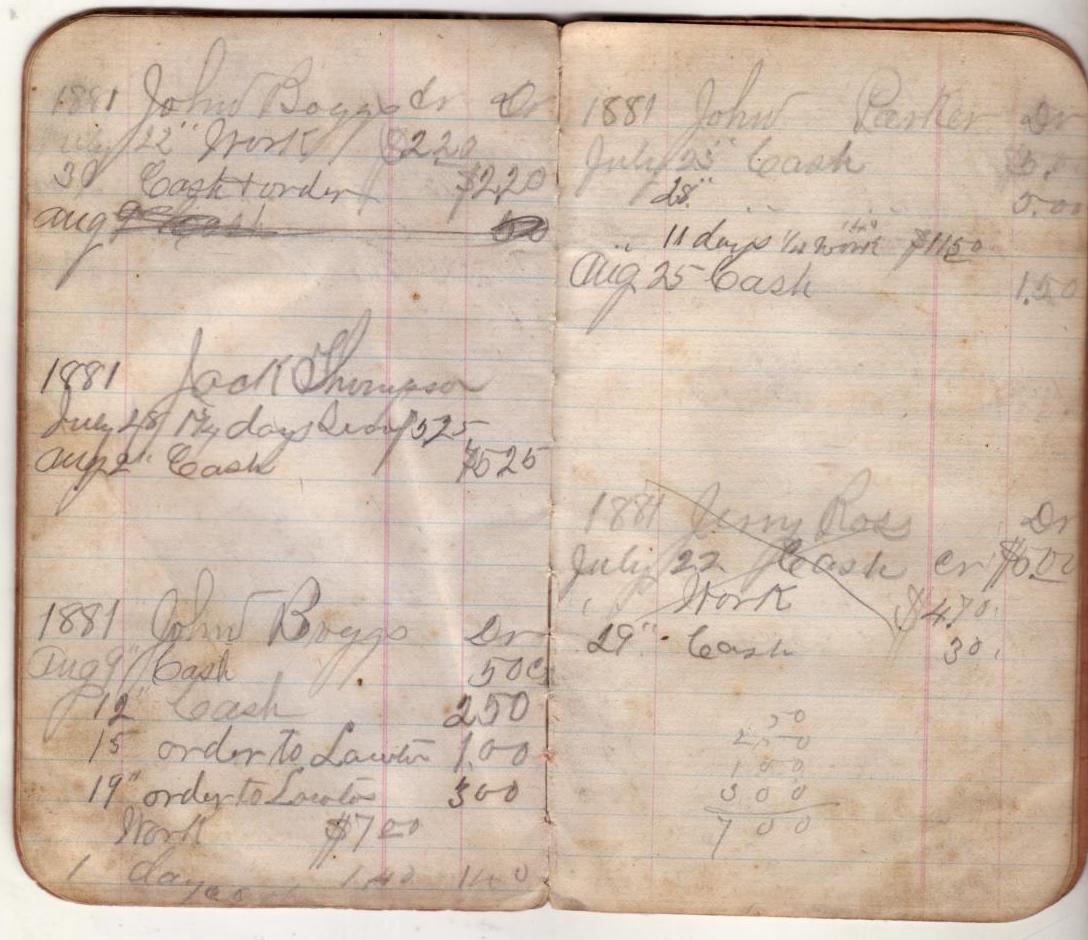 1881 John Boggs cr Dr
July 22" Work $2 20
30 Cash + order $2,20
Aug 9" Cash 50
1881 Jack Thompson
July 28 days 5 25
Aug 2" Cash $5 25
1881 John Boggs Dr
Aug 9" Cash 50 c
12" Cash 2 50
15 order to Lawton 1,00
19" order to Lawton 3 00
Work $7 00
1 day 1 40 1 40
1881 John Parker Dr
July 23" Cash
28" " " 5.00
" 11 days 1/2 work $11 50
Aug 25 Cash 1,50
1881 Jerry Ross Dr
July 22 Cash cr $5.00
" Work $4 70
29" Cash 30
50
2 50
1 00
3 00
7 00